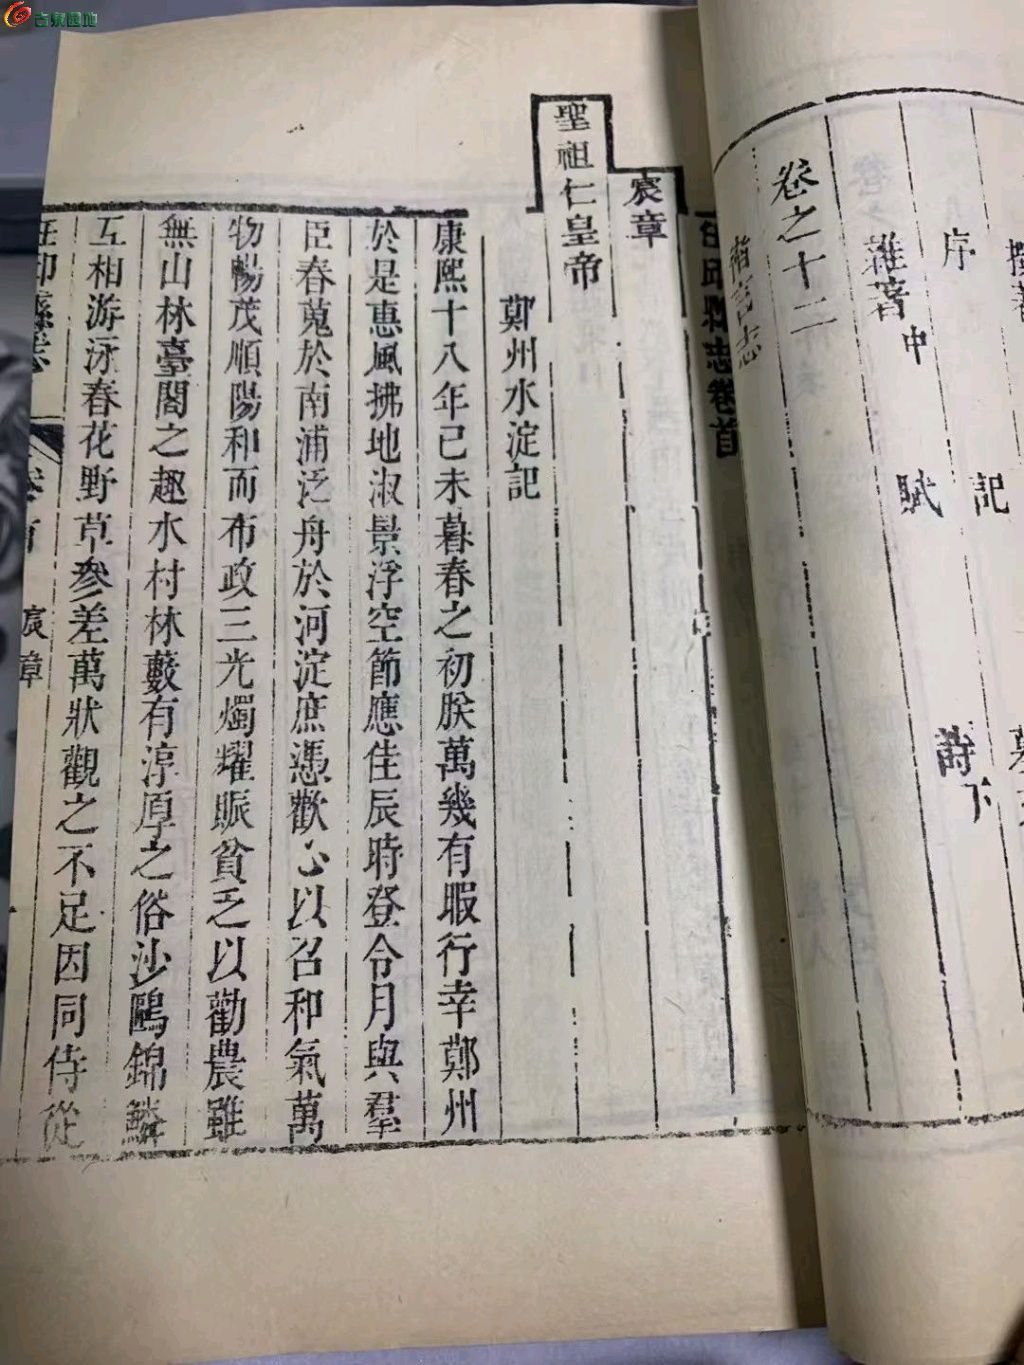 古泉園地
序
記
詩下
卷之十二
雜著中
賦
舊志
任邱縣志卷首
宸章
聖祖仁皇帝
鄭州水淀記
康熙十八年己未暮春之初朕萬幾有暇行幸鄭州
於是惠風拂地淑景浮空節應佳辰時登令月與羣
臣春蒐於南浦泛舟於河淀庶憑歡心以召和氣萬
物暢茂順陽和而布政三光燭耀賑貧乏以勸農雖
無山林臺閣之趣水村林藪有淳厚之俗沙鷗錦鱗
互相游泳春花野草參差萬狀觀之不足因同侍從
任邱縣志
卷首
宸章